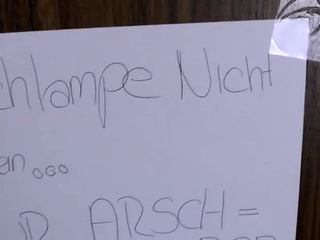 chlampe Nicht
en...
R ARSCH=